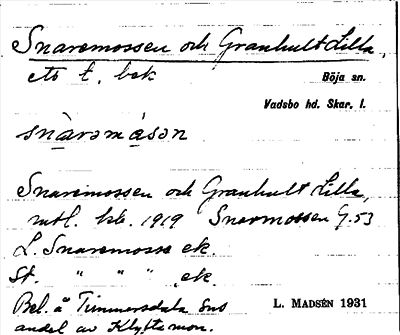 Snaremossen och Granhult Lilla,
ett t. bek
Böja sn.
Vadsbo hd. Skar. l.
snàrəmåsən
Snaremossen och Granhult Lilla,
mtl. 1919 Snarmossen G. 53
L. Snaremosse ek.
St. " " " ek.
Bel. å Timmersdala sns
andel av Klyftamon.
L. MADSÉN 1931